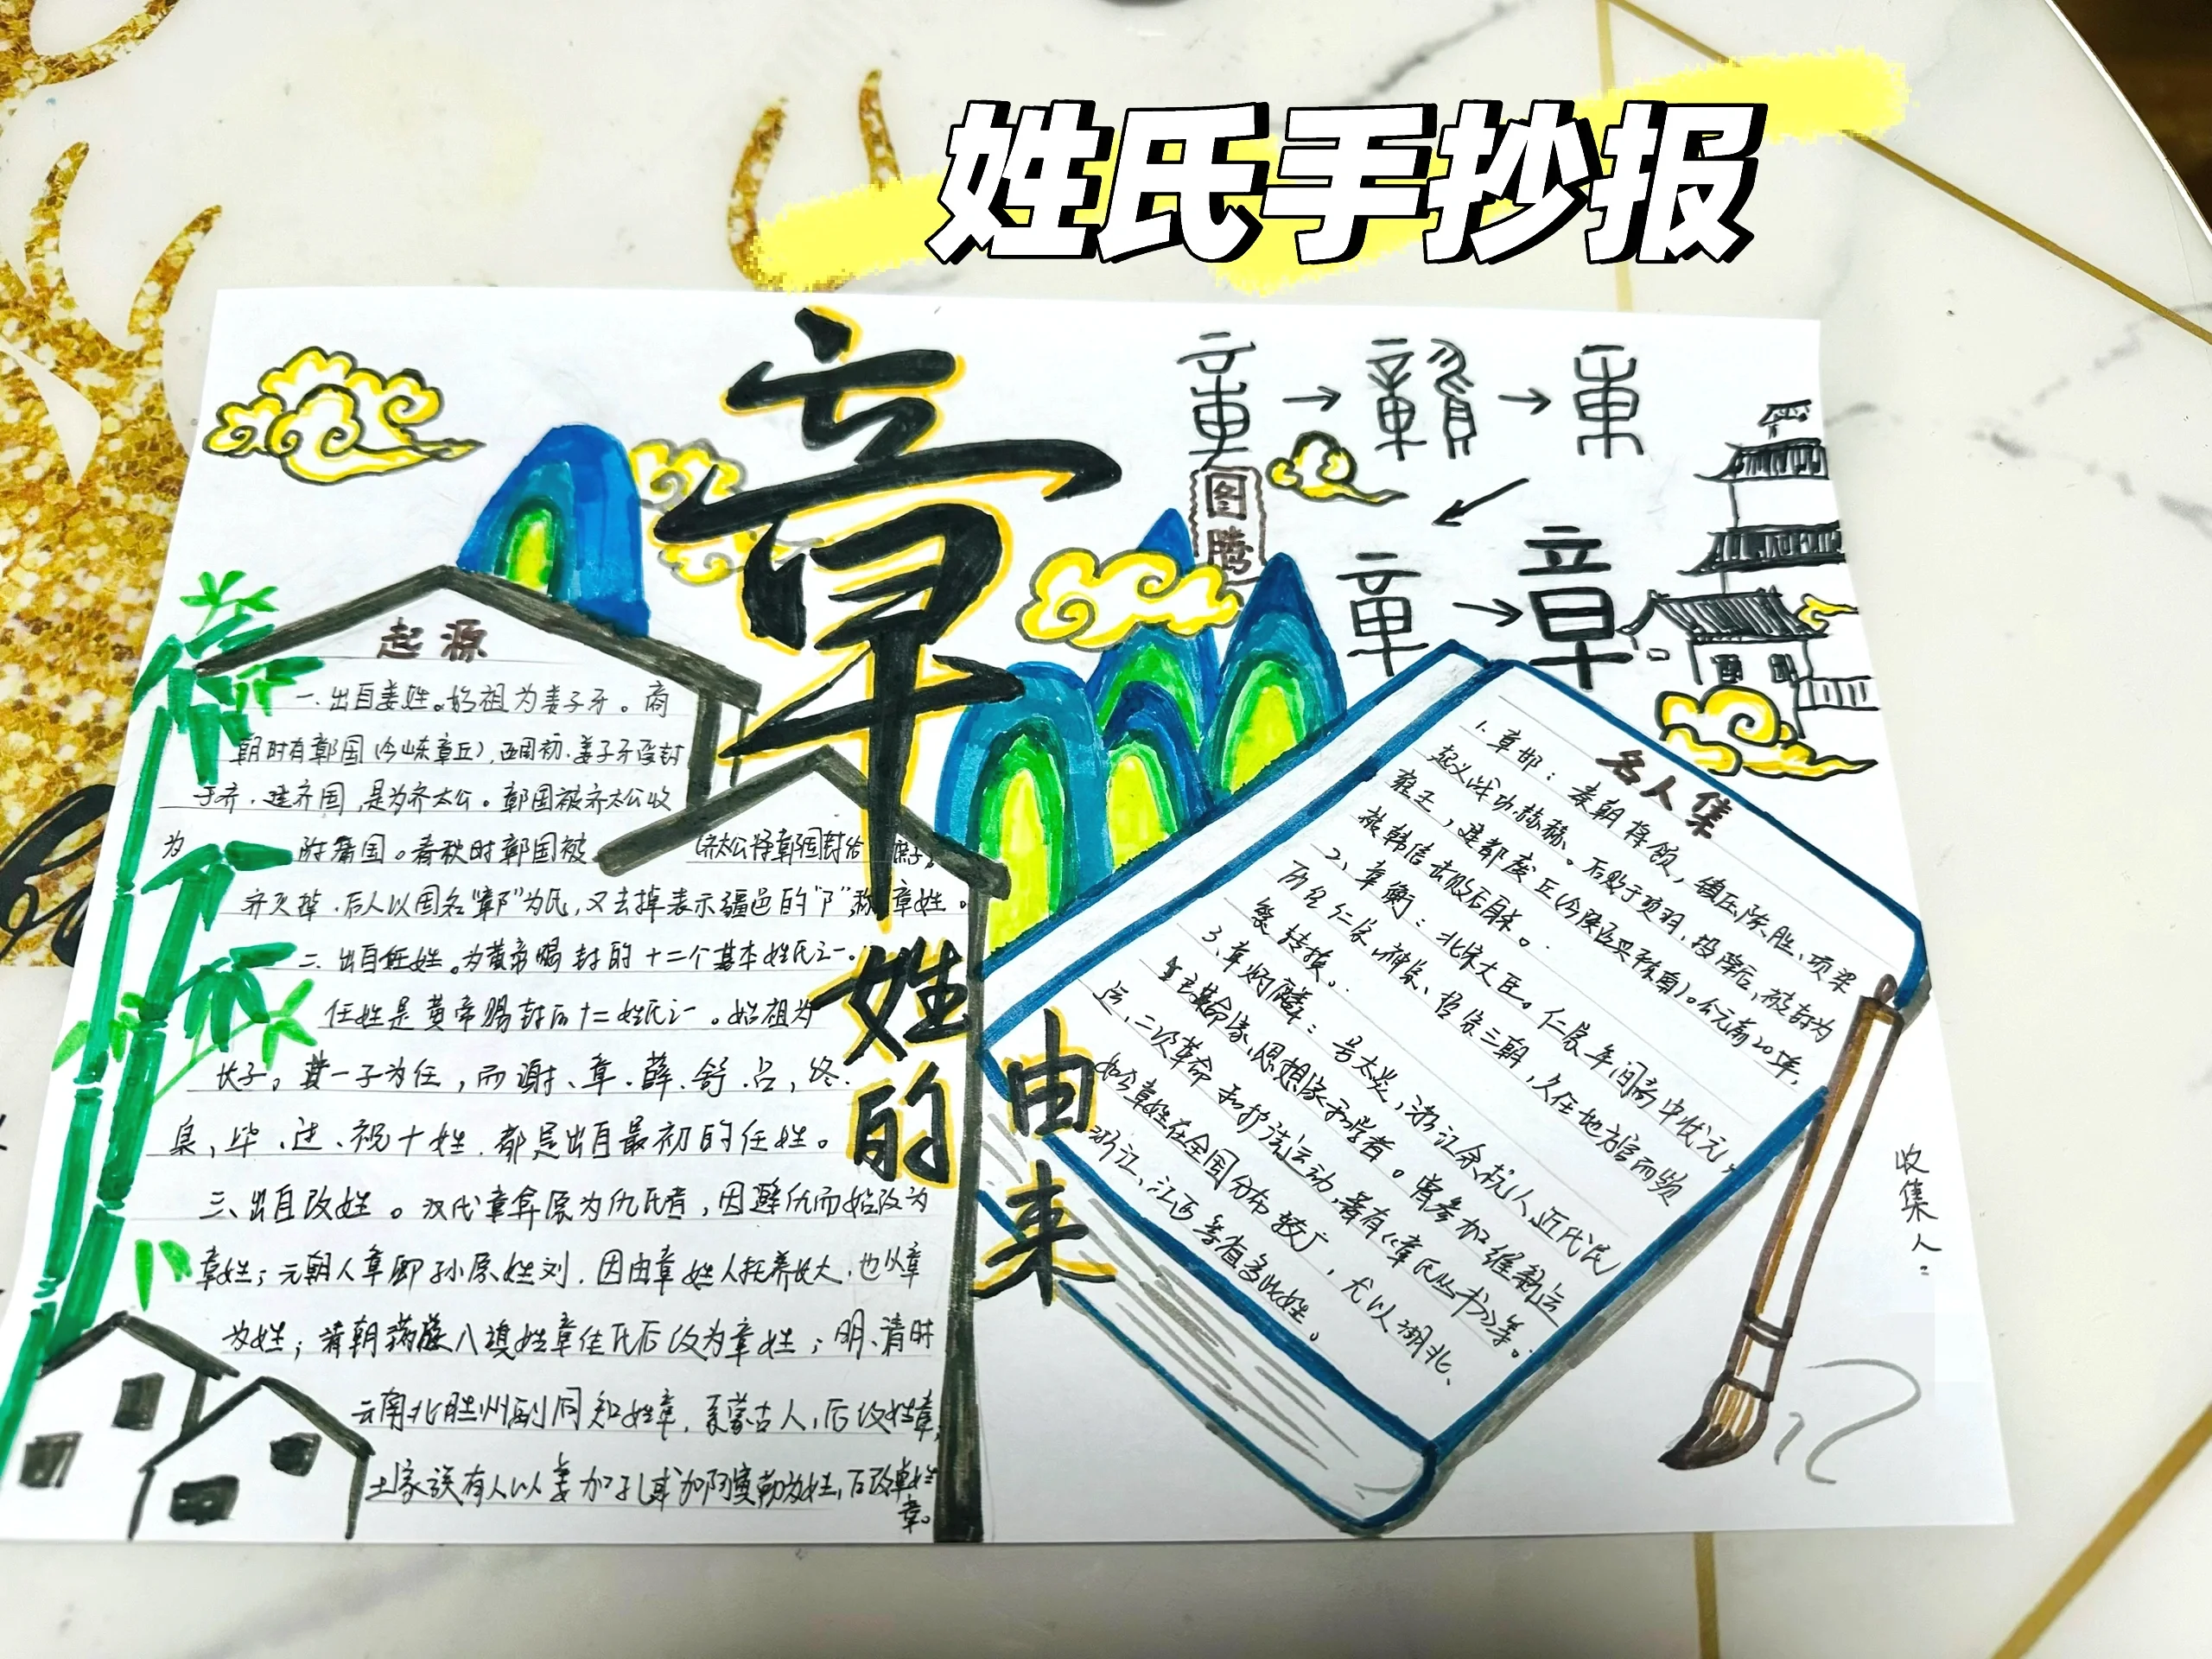 姓氏手抄报
章
姓的
由来
图腾
起源
一.出自姜姓。始祖为姜子牙。商
朝时有鄣国(今山东章丘),西周初.姜子牙受封
于齐.建齐国,是为齐太公。鄣国被齐太公收
为 附庸国。春秋时鄣国被 (齐太公将鄣国封给庶子)
齐灭掉.后人以国名"鄣"为氏,又去掉表示疆邑的"阝"称章姓。
二.出自任姓。为黄帝赐封的十二个基本姓氏之一.
任姓是黄帝赐封的十二姓氏之一。始祖为
长子。其一子为任,而谢、章.薛.舒.吕,终.
泉,毕.过.祝十姓.都是出自最初的任姓。
三、出自改姓。汉代章弇原为仇氏者,因避仇而始改为
章姓;元朝人章卿孙原姓刘.因由章姓人抚养长大.也以章
为姓;清朝满族八旗姓章佳氏后改为章姓;明.清时
云南北胜州副同知姓章,系蒙古人,后改姓章,
土家族有人以姜加孔或加阿度勒为姓,后改单姓
章。
名人集
1.章邯:秦朝将领,镇压陈胜、项梁
起义战功赫赫。后败于项羽,投降后,被封为
雍王,建都废丘(今陕西兴平东南)。公元前205年,
被韩信击败后自杀。
2、章衡:北宋大臣。仁宗年间高中状元。
历经仁宗、神宗、哲宗三朝,久任地方官而频
繁转换。
3.章炳麟:号太炎,浙江余杭人,近代民
主革命家、思想家和学者。曾参加维新运
运、二次革命和护法运动,著有《章氏丛书》等。
如今章姓在全国分布较广,尤以湖北、
浙江、江西等省多此姓。
收集人: